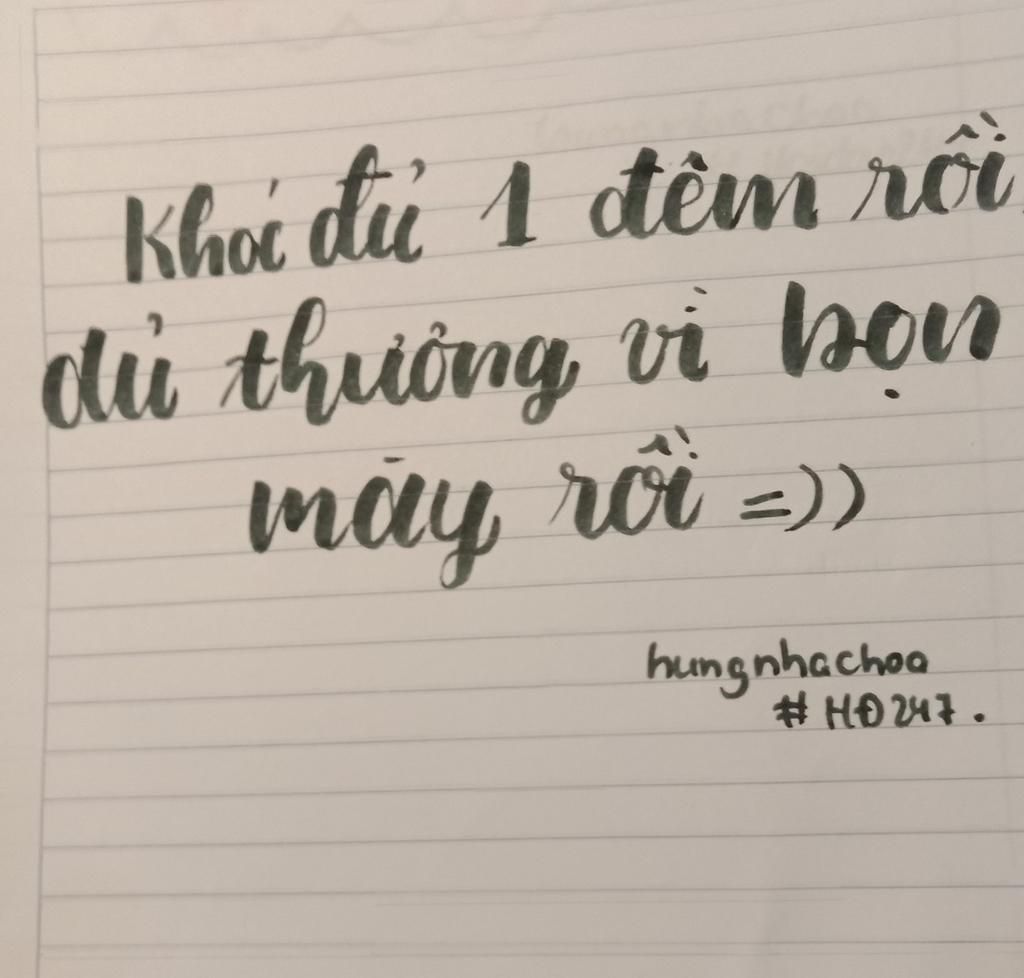 Khóc đủ 1 đêm rồi
dủ thưởng vì bọn
mày rồi =))
hungnhachoa
#HĐ247.